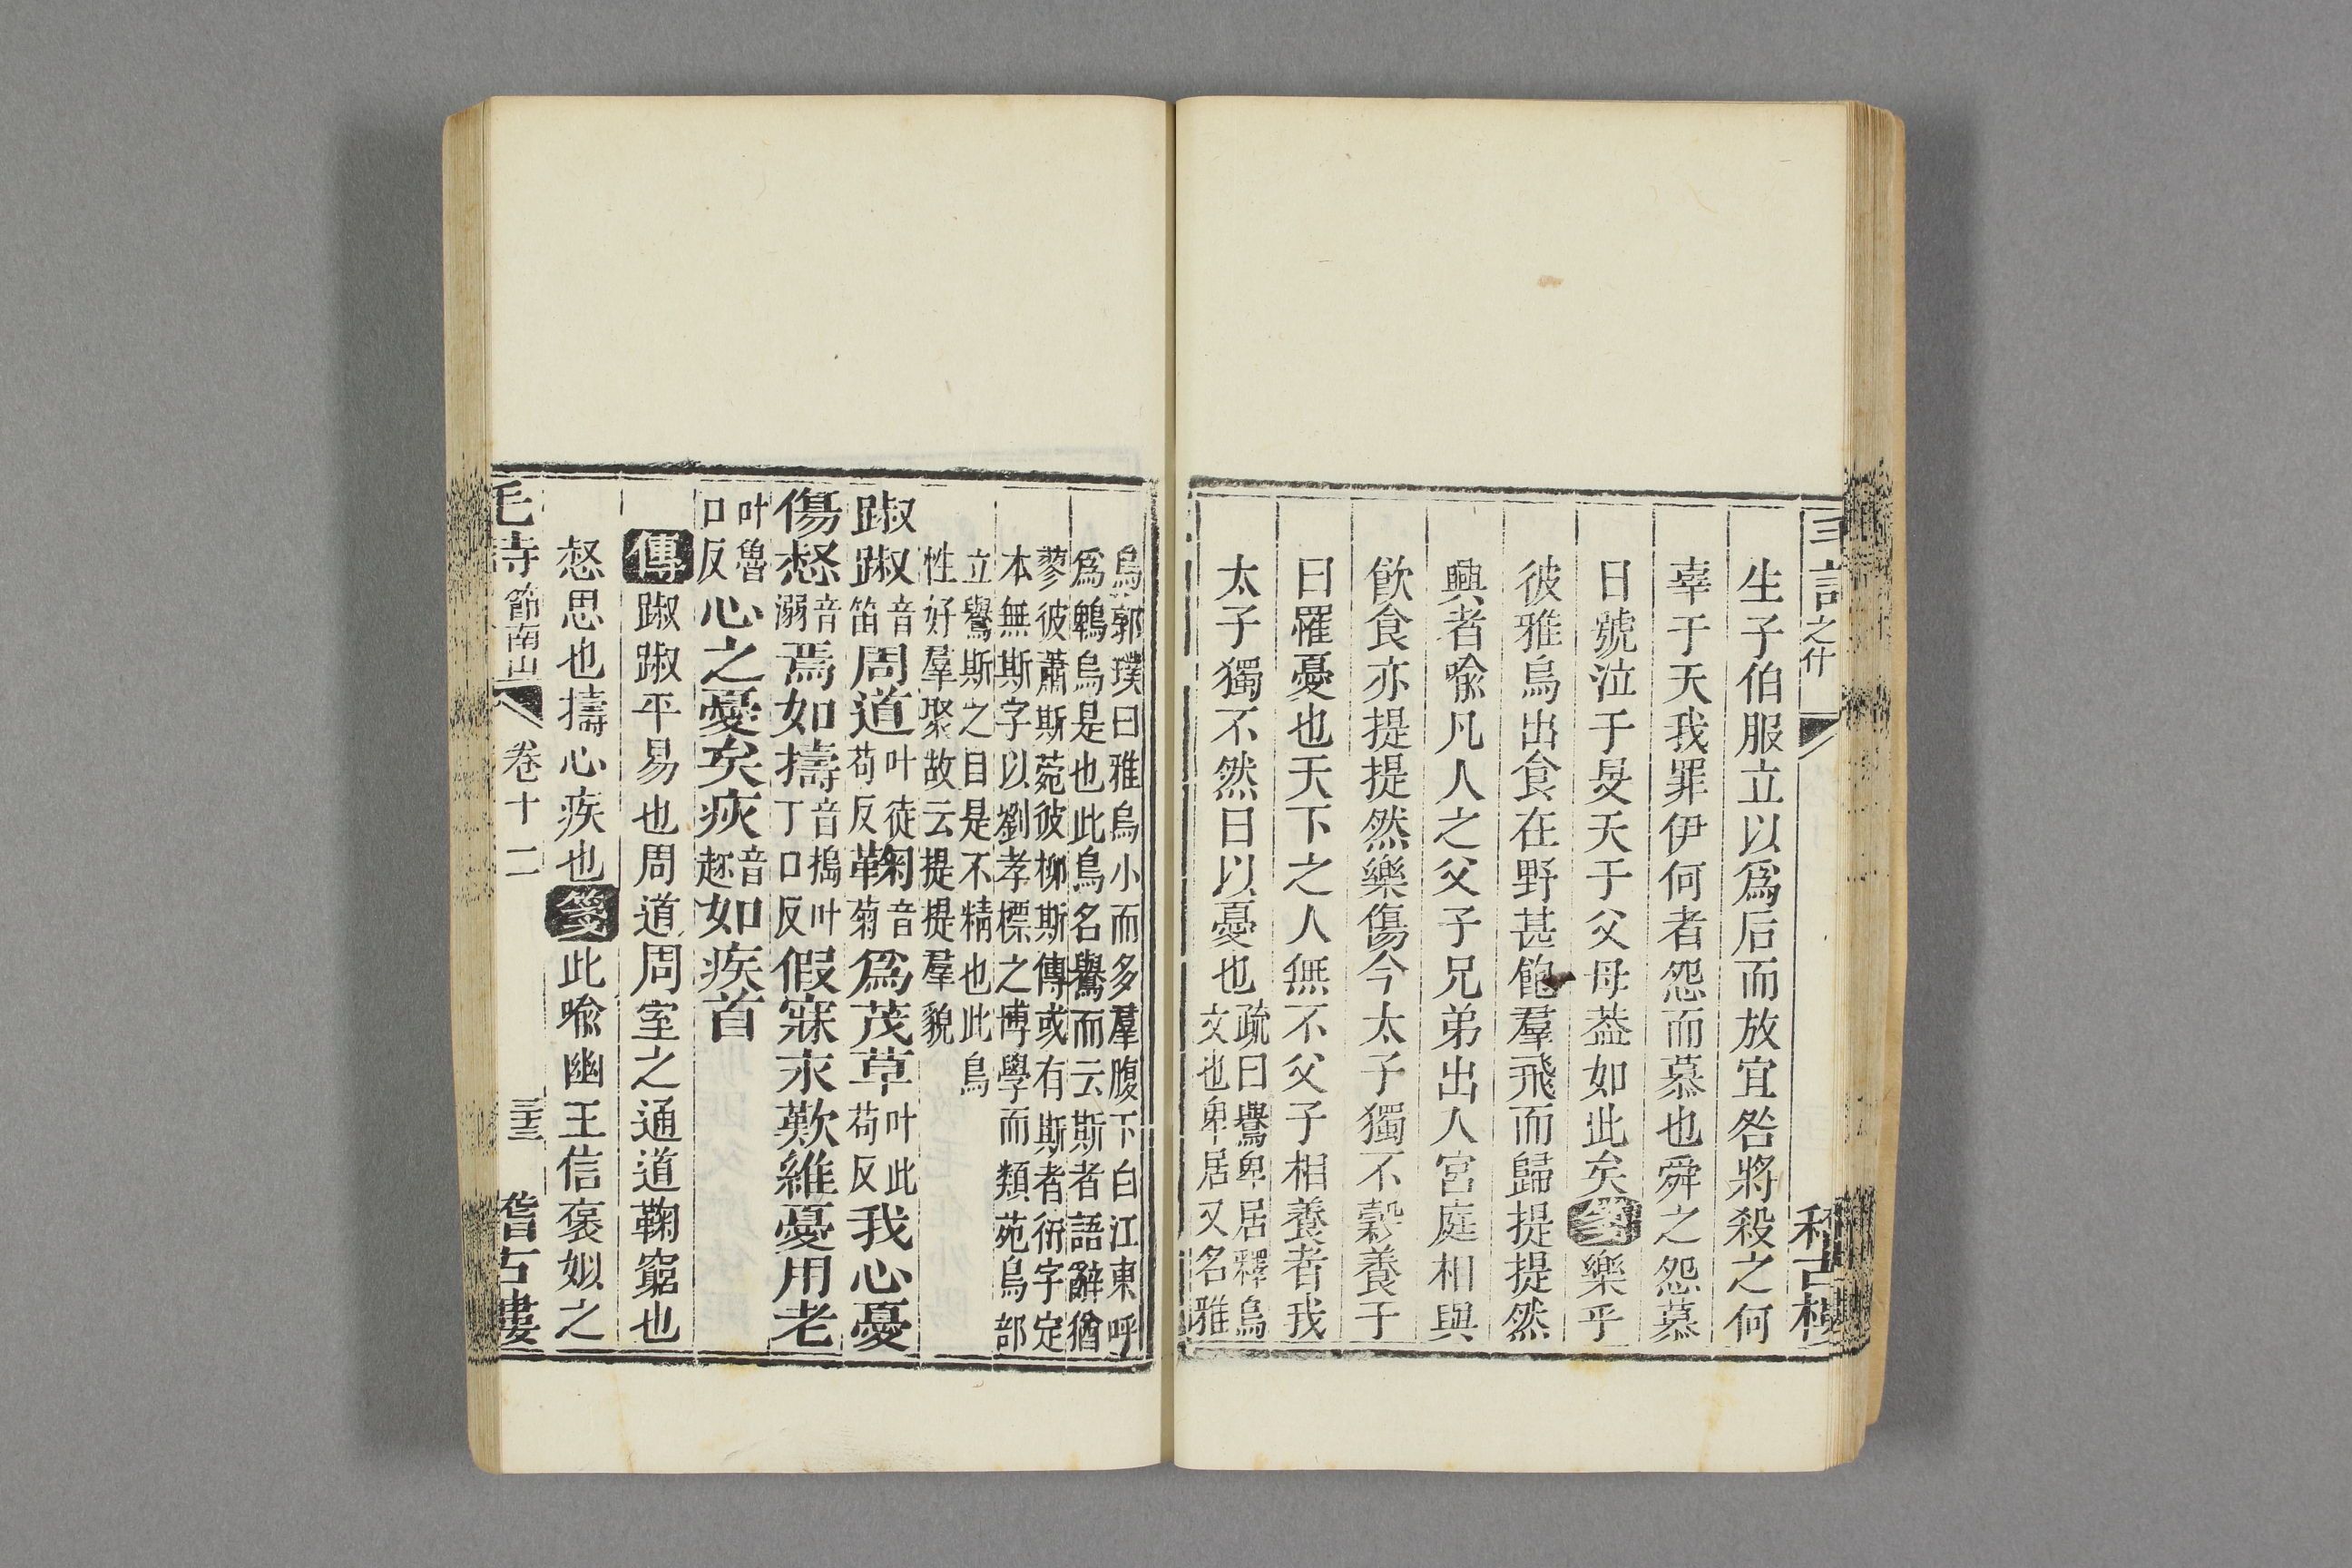 生子伯服立以爲后而放宜咎將殺之何
辜于天我罪伊何者怨而慕也舜之怨慕
日號泣于旻天于父母葢如此矣箋樂乎
彼雅烏出食在野甚飽羣飛而歸提提然
興者喻凡人之父子兄弟出人宮庭相與
飮食亦提提然樂傷今太子獨不穀養子
曰罹憂也天下之人無不父子相養者我
太子獨不然日以憂也
疏曰鸒卑居釋烏
文也卑居又名雅
烏郭璞曰雅烏小而多羣腹下白江東呼
爲鵯烏是也此鳥名鸒而云斯者語辭猶
蓼彼蕭斯菀彼柳斯傳或有斯者衍字定
本無斯字以劉孝標之博學而類苑烏部
立鸒斯之目是不精也此鳥
性好羣聚故云提提羣貌
踧踧音笛周道叶徒苟反鞫音菊爲茂草叶此苟反我心憂
傷惄音溺焉如擣音搗叶丁口反假寐永歎維憂用老
叶魯口反心之憂矣疢音趂如疾首
傳踧踧平易也周道周室之通道鞫窮也
惄思也擣心疾也箋此喻幽王信褒姒之
毛詩 節南山 卷十二 三十三 稽古樓